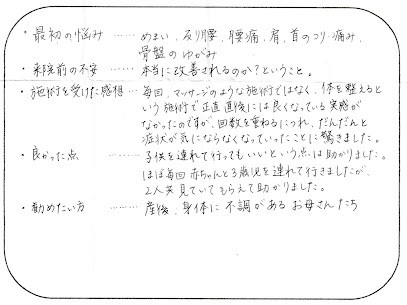 ・最初の悩み ……… めまい、反り腰、腰痛、肩、首のコリ・痛み、
骨盤のゆがみ
・来院前の不安 …… 本当に改善されるのか?ということ。
・施術を受けた感想 … 毎回、マッサージのような施術ではなく、体を整えると
いう施術で正直直後には良くなっている実感が
なかったのですが、回数を重ねるにつれ、だんだんと
症状が気にならなくなっていったことに驚きました。
・良かった点 ……… 子供を連れて行ってもいいという点は助かりました。
ほぼ毎回赤ちゃんと3歳児を連れて行きましたが、
2人共見ていてもらえて助かりました。
・勧めたい方 ……… 産後、身体に不調があるお母さんたち